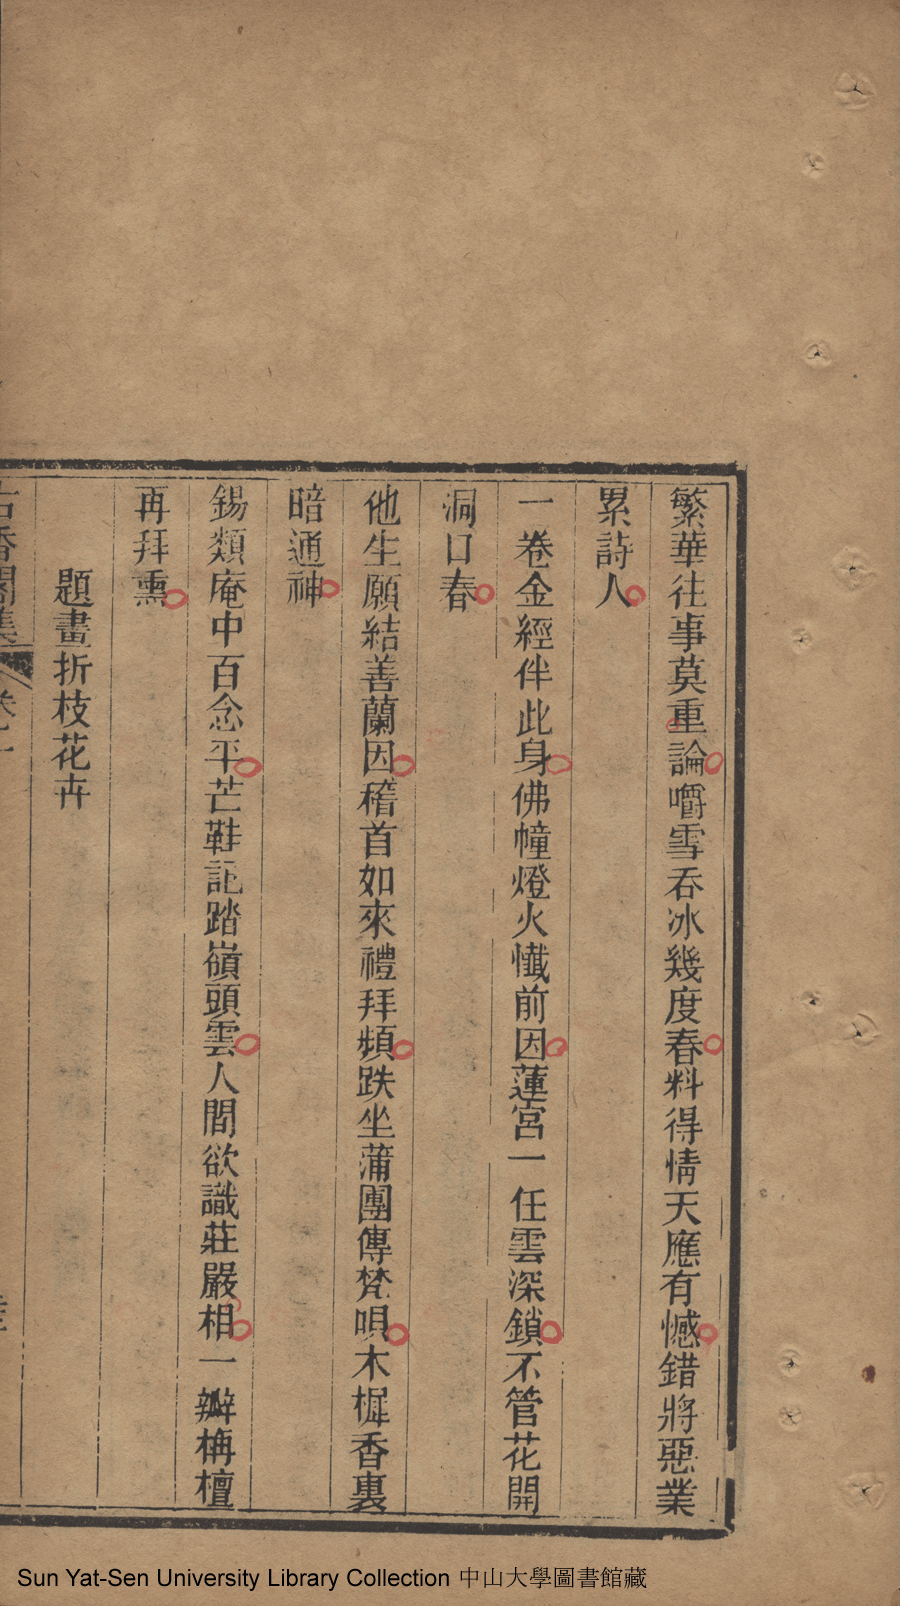 繁華往事莫重論嚼雪吞冰幾度春料得情天應有憾錯將惡業
累詩人
一卷金經伴此身佛幢燈火懺前因蓮宮一任雲深鎖不管花開
洞口春
他生願結善蘭因稽首如來禮拜頻趺坐蒲團傳梵唄木樨香裏
暗通神
錫類庵中百念平芒鞋記踏嶺頭雲人間欲識莊嚴相一瓣栴檀
再拜熏
題畫折枝花卉
古香閣集
Sun Yat-Sen University Library Collection 中山大學圖書館藏